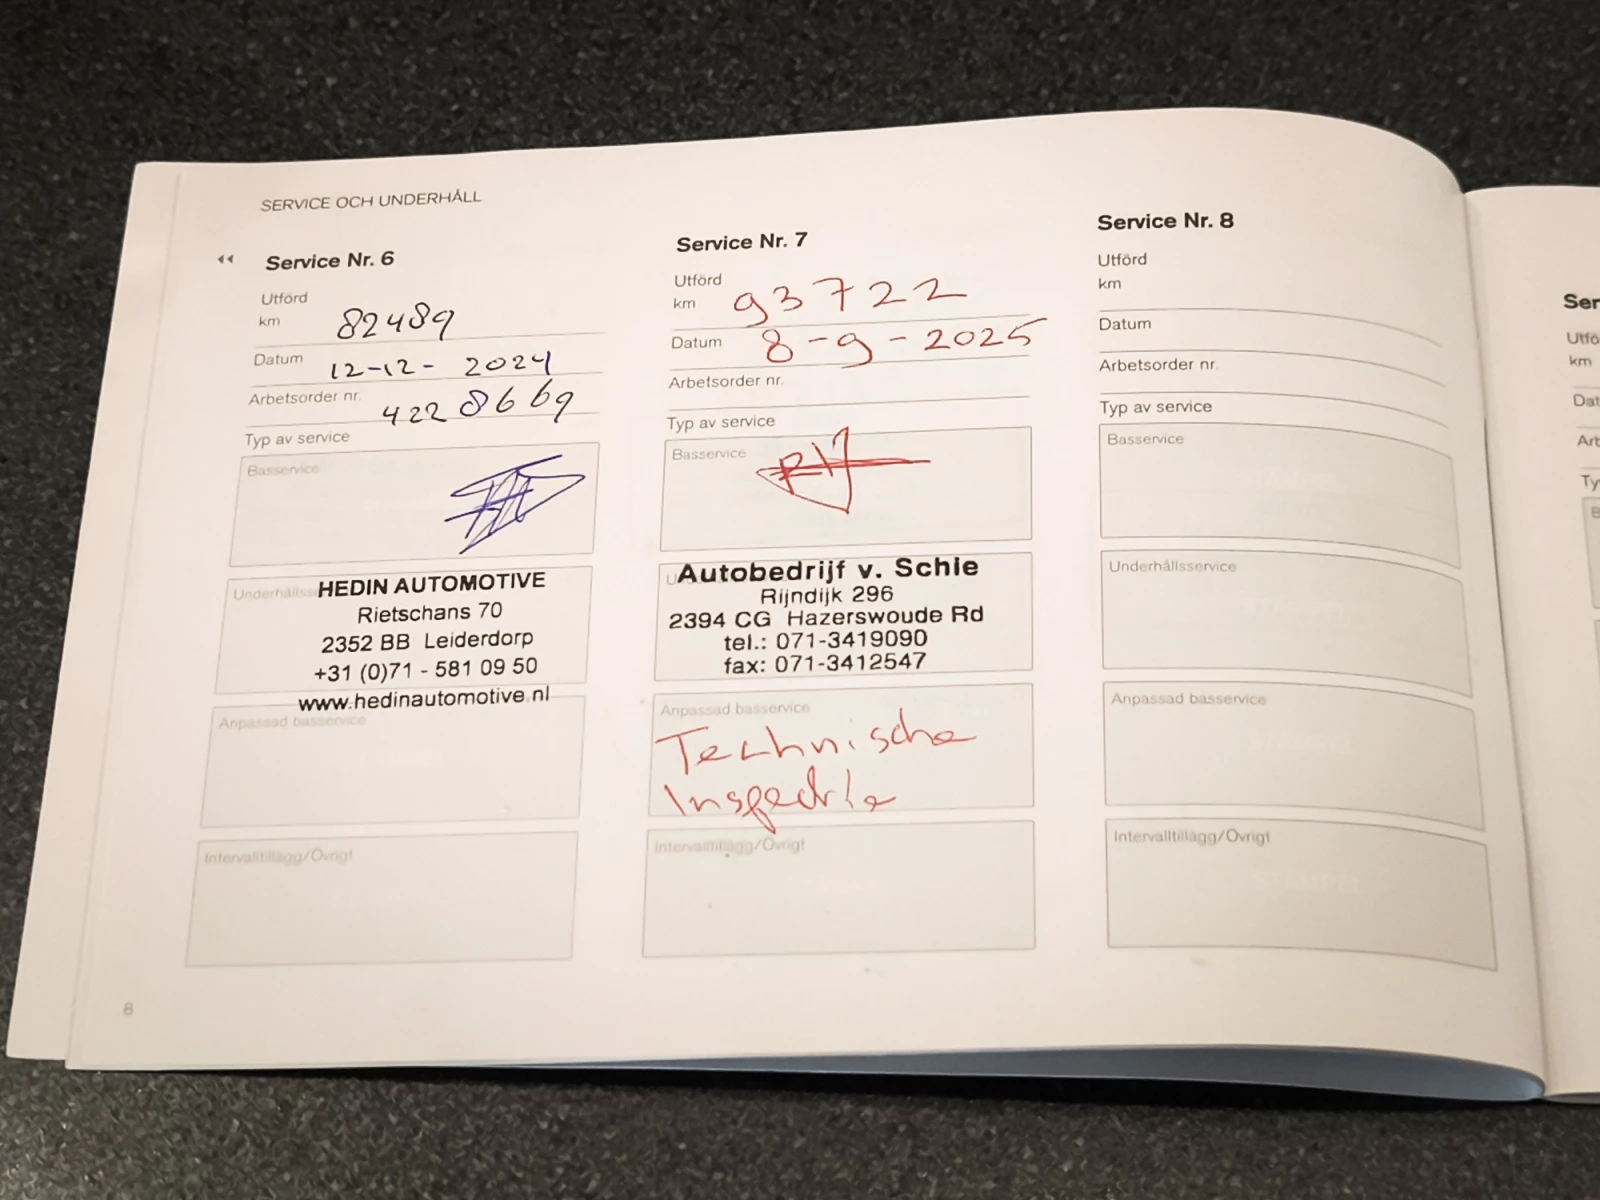 SERVICE OCH UNDERHÅLL
Service Nr. 6
Utförd
km 82489
Datum 12-12- 2024
Arbetsorder nr. 4228669
Typ av service
Basservice
Underhålls
HEDIN AUTOMOTIVE
Rietschans 70
2352 BB Leiderdorp
+31 (0)71 - 581 09 50
www.hedinautomotive.nl
Anpassad basservice
Intervalltillägg/Övrigt
Service Nr. 7
Utförd
km 93722
Datum 8-9-2025
Arbetsorder nr.
Typ av service
Basservice
Autobedrijf v. Schie
Rijndijk 296
2394 CG Hazerswoude Rd
tel.: 071-3419090
fax: 071-3412547
Anpassad basservice
Technische
Inspectie
Intervalltillägg/Övrigt
Service Nr. 8
Utförd
km
Datum
Arbetsorder nr.
Typ av service
Basservice
Underhållsservice
Anpassad basservice
Intervalltillägg/Övrigt
STÄMPEL
8
Ser
Utfö
km
Dat
Arb
Ty
B